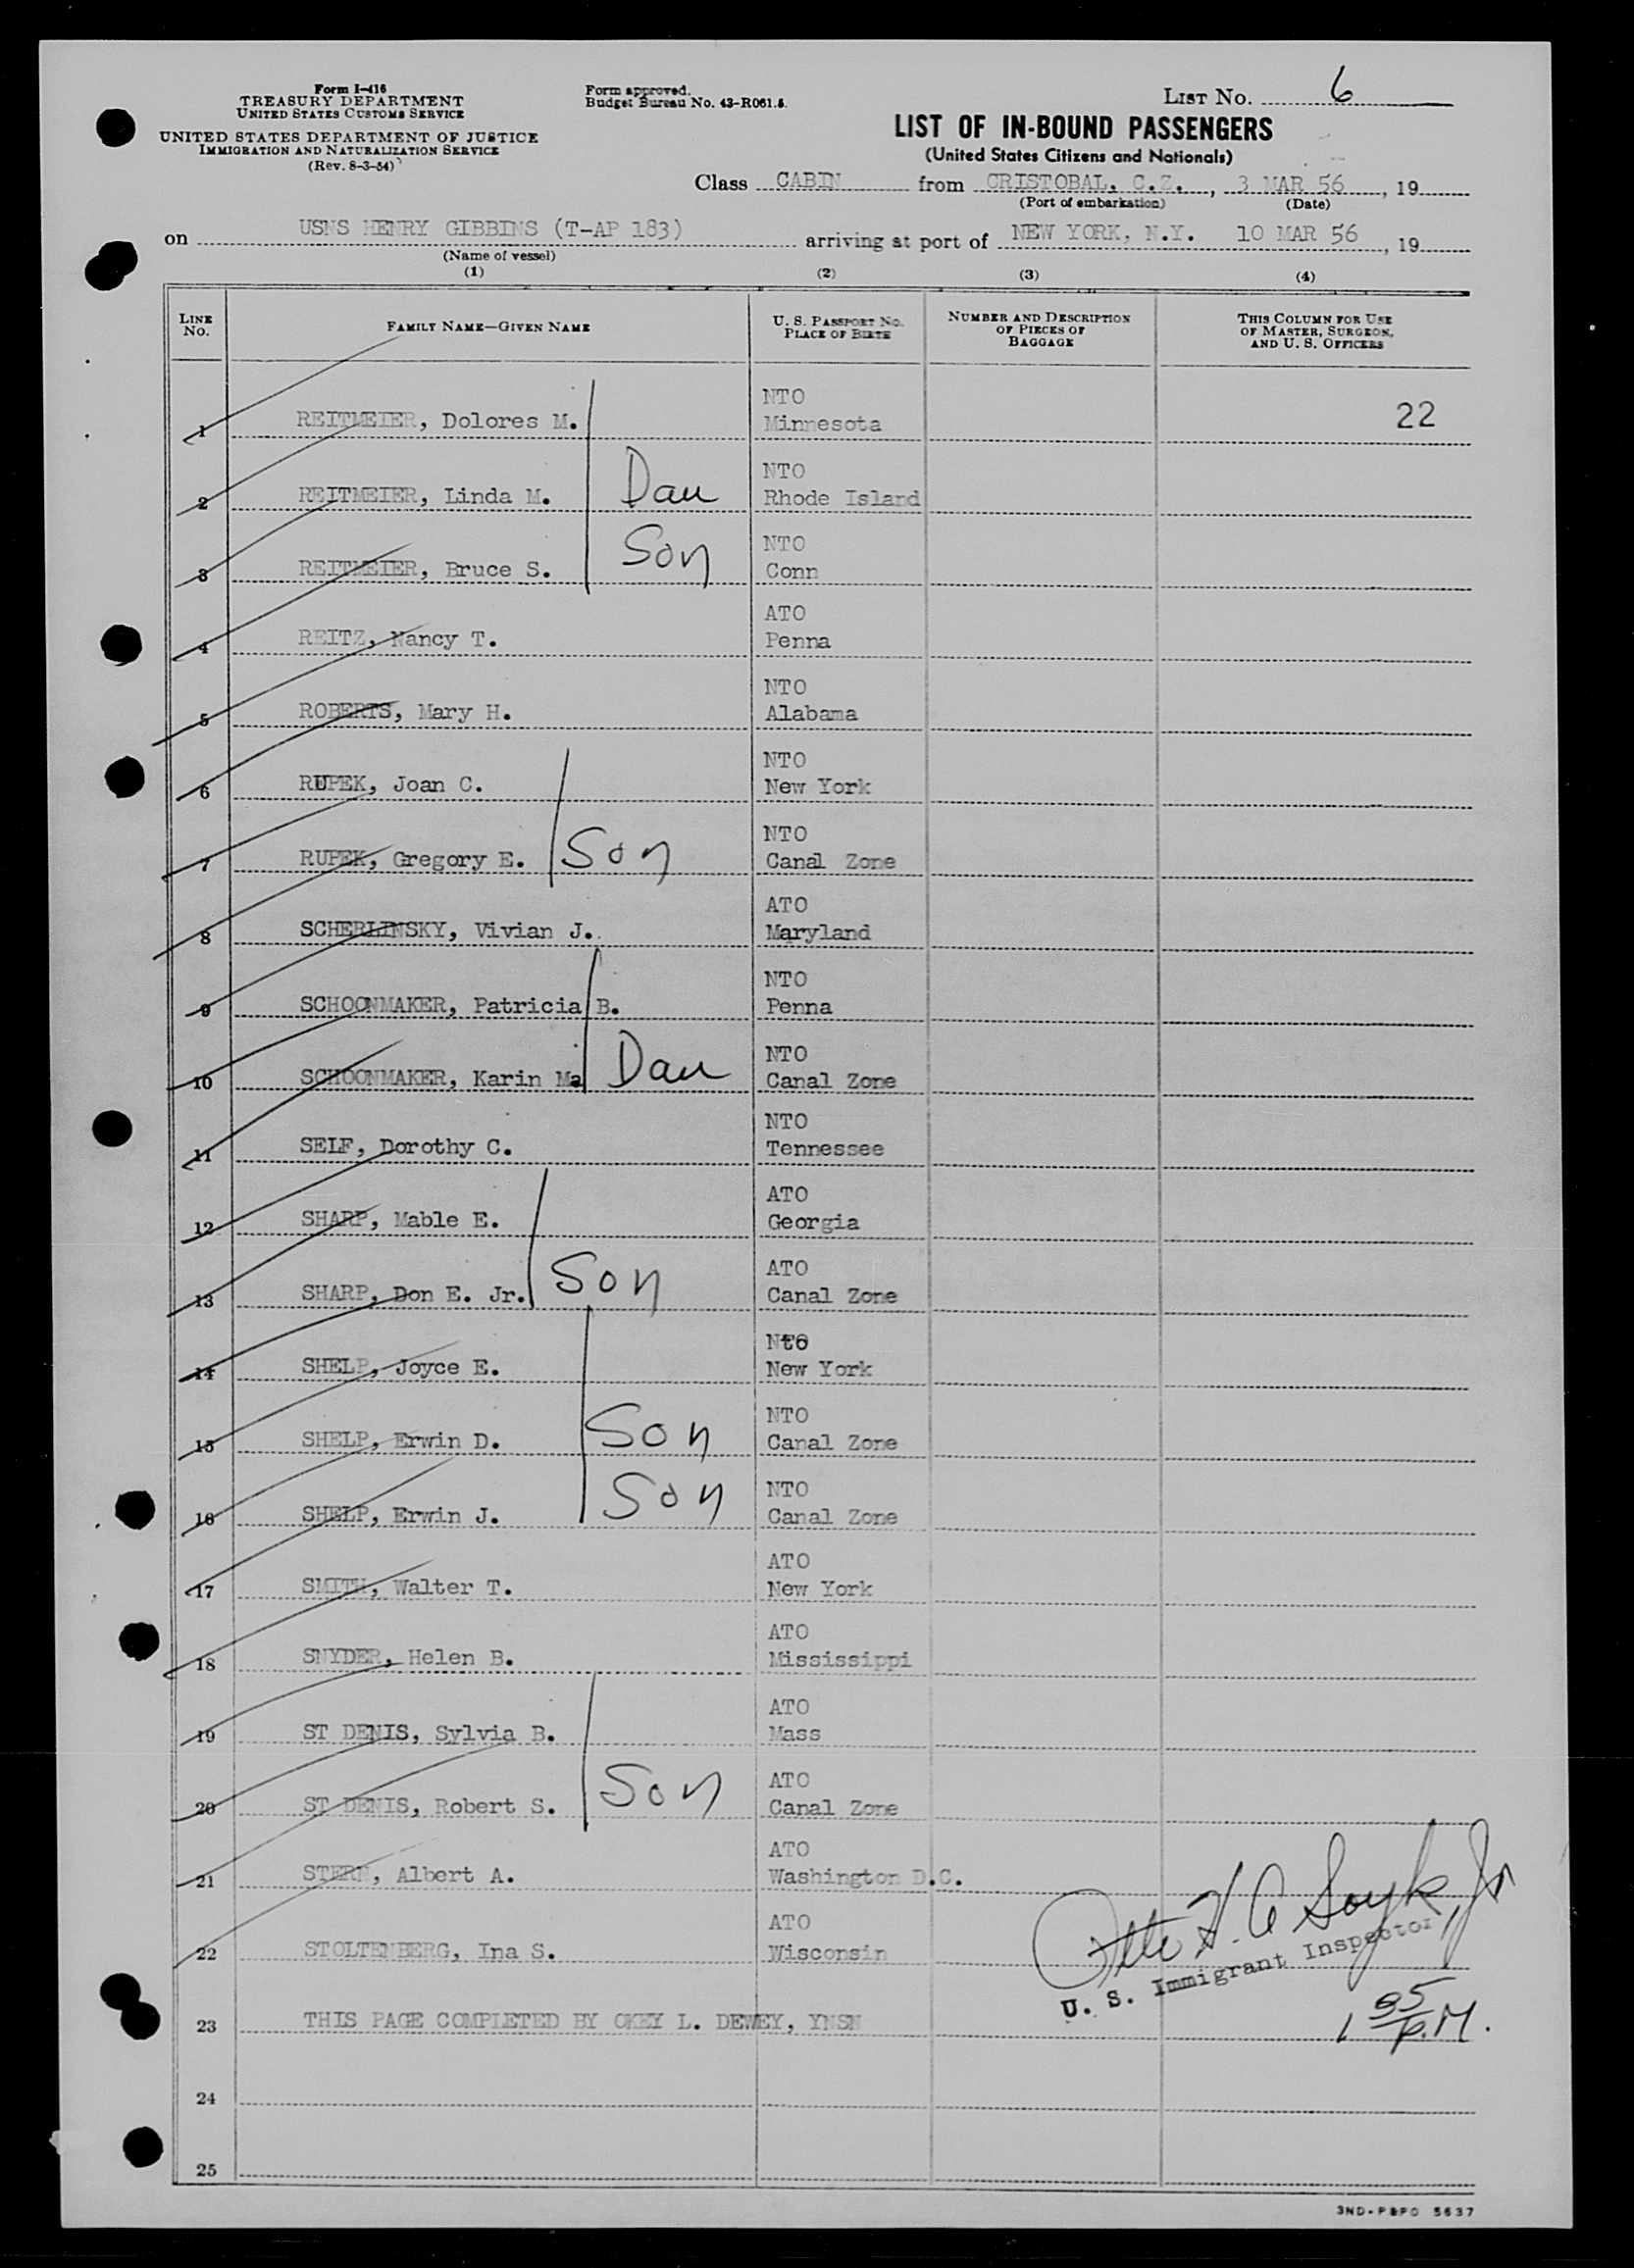 Form I-416
TREASURY DEPARTMENT
UNITED STATES CUSTOMS SERVICE
UNITED STATES DEPARTMENT OF JUSTICE
IMMIGRATION AND NATURALIZATION SERVICE
(Rev. 8-3-54)
Form approved.
Budget Bureau No. 43-R061.5.
LIST No. 6
LIST OF IN-BOUND PASSENGERS
(United States Citizens and Nationals)
Class CABIN from CRISTOBAL, C.Z., 3 MAR 56, 19
(Port of embarkation) (Date)
on USNS HENRY GIBBINS (T-AP 183) arriving at port of NEW YORK, N.Y. 10 MAR 56, 19
(Name of vessel)
(1) (2) (3) (4)
LINE No. FAMILY NAME—GIVEN NAME U. S. PASSPORT No. PLACE OF BIRTH NUMBER AND DESCRIPTION OF PIECES OF BAGGAGE THIS COLUMN FOR USE OF MASTER, SURGEON, AND U. S. OFFICERS
NTO
1 REITMEIER, Dolores M. Minnesota 22
NTO
2 REITMEIER, Linda M. Dau Rhode Island
NTO
3 REITMEIER, Bruce S. Son Conn
ATO
4 REITZ, Nancy T. Penna
NTO
5 ROBERTS, Mary H. Alabama
NTO
6 RUPEK, Joan C. New York
NTO
7 RUPEK, Gregory E. Son Canal Zone
ATO
8 SCHERLINSKY, Vivian J. Maryland
NTO
9 SCHOONMAKER, Patricia B. Penna
NTO
10 SCHOONMAKER, Karin Ma Dau Canal Zone
NTO
11 SELF, Dorothy C. Tennessee
ATO
12 SHARP, Mable E. Georgia
ATO
13 SHARP, Don E. Jr. Son Canal Zone
Nto
14 SHELP, Joyce E. New York
NTO
15 SHELP, Erwin D. Son Canal Zone
NTO
16 SHELP, Erwin J. Son Canal Zone
ATO
17 SMITH, Walter T. New York
ATO
18 SNYDER, Helen B. Mississippi
ATO
19 ST DENIS, Sylvia B. Mass
ATO
20 ST DENIS, Robert S. Son Canal Zone
ATO
21 STERN, Albert A. Washington D.C.
ATO
22 STOLTENBERG, Ina S. Wisconsin
Otto H. A Soyk, Jr
U. S. Immigrant Inspector
23 THIS PAGE COMPLETED BY OKEY L. DEWEY, YNSN
1 05 P.M.
24
25
3ND-P&PO 5637